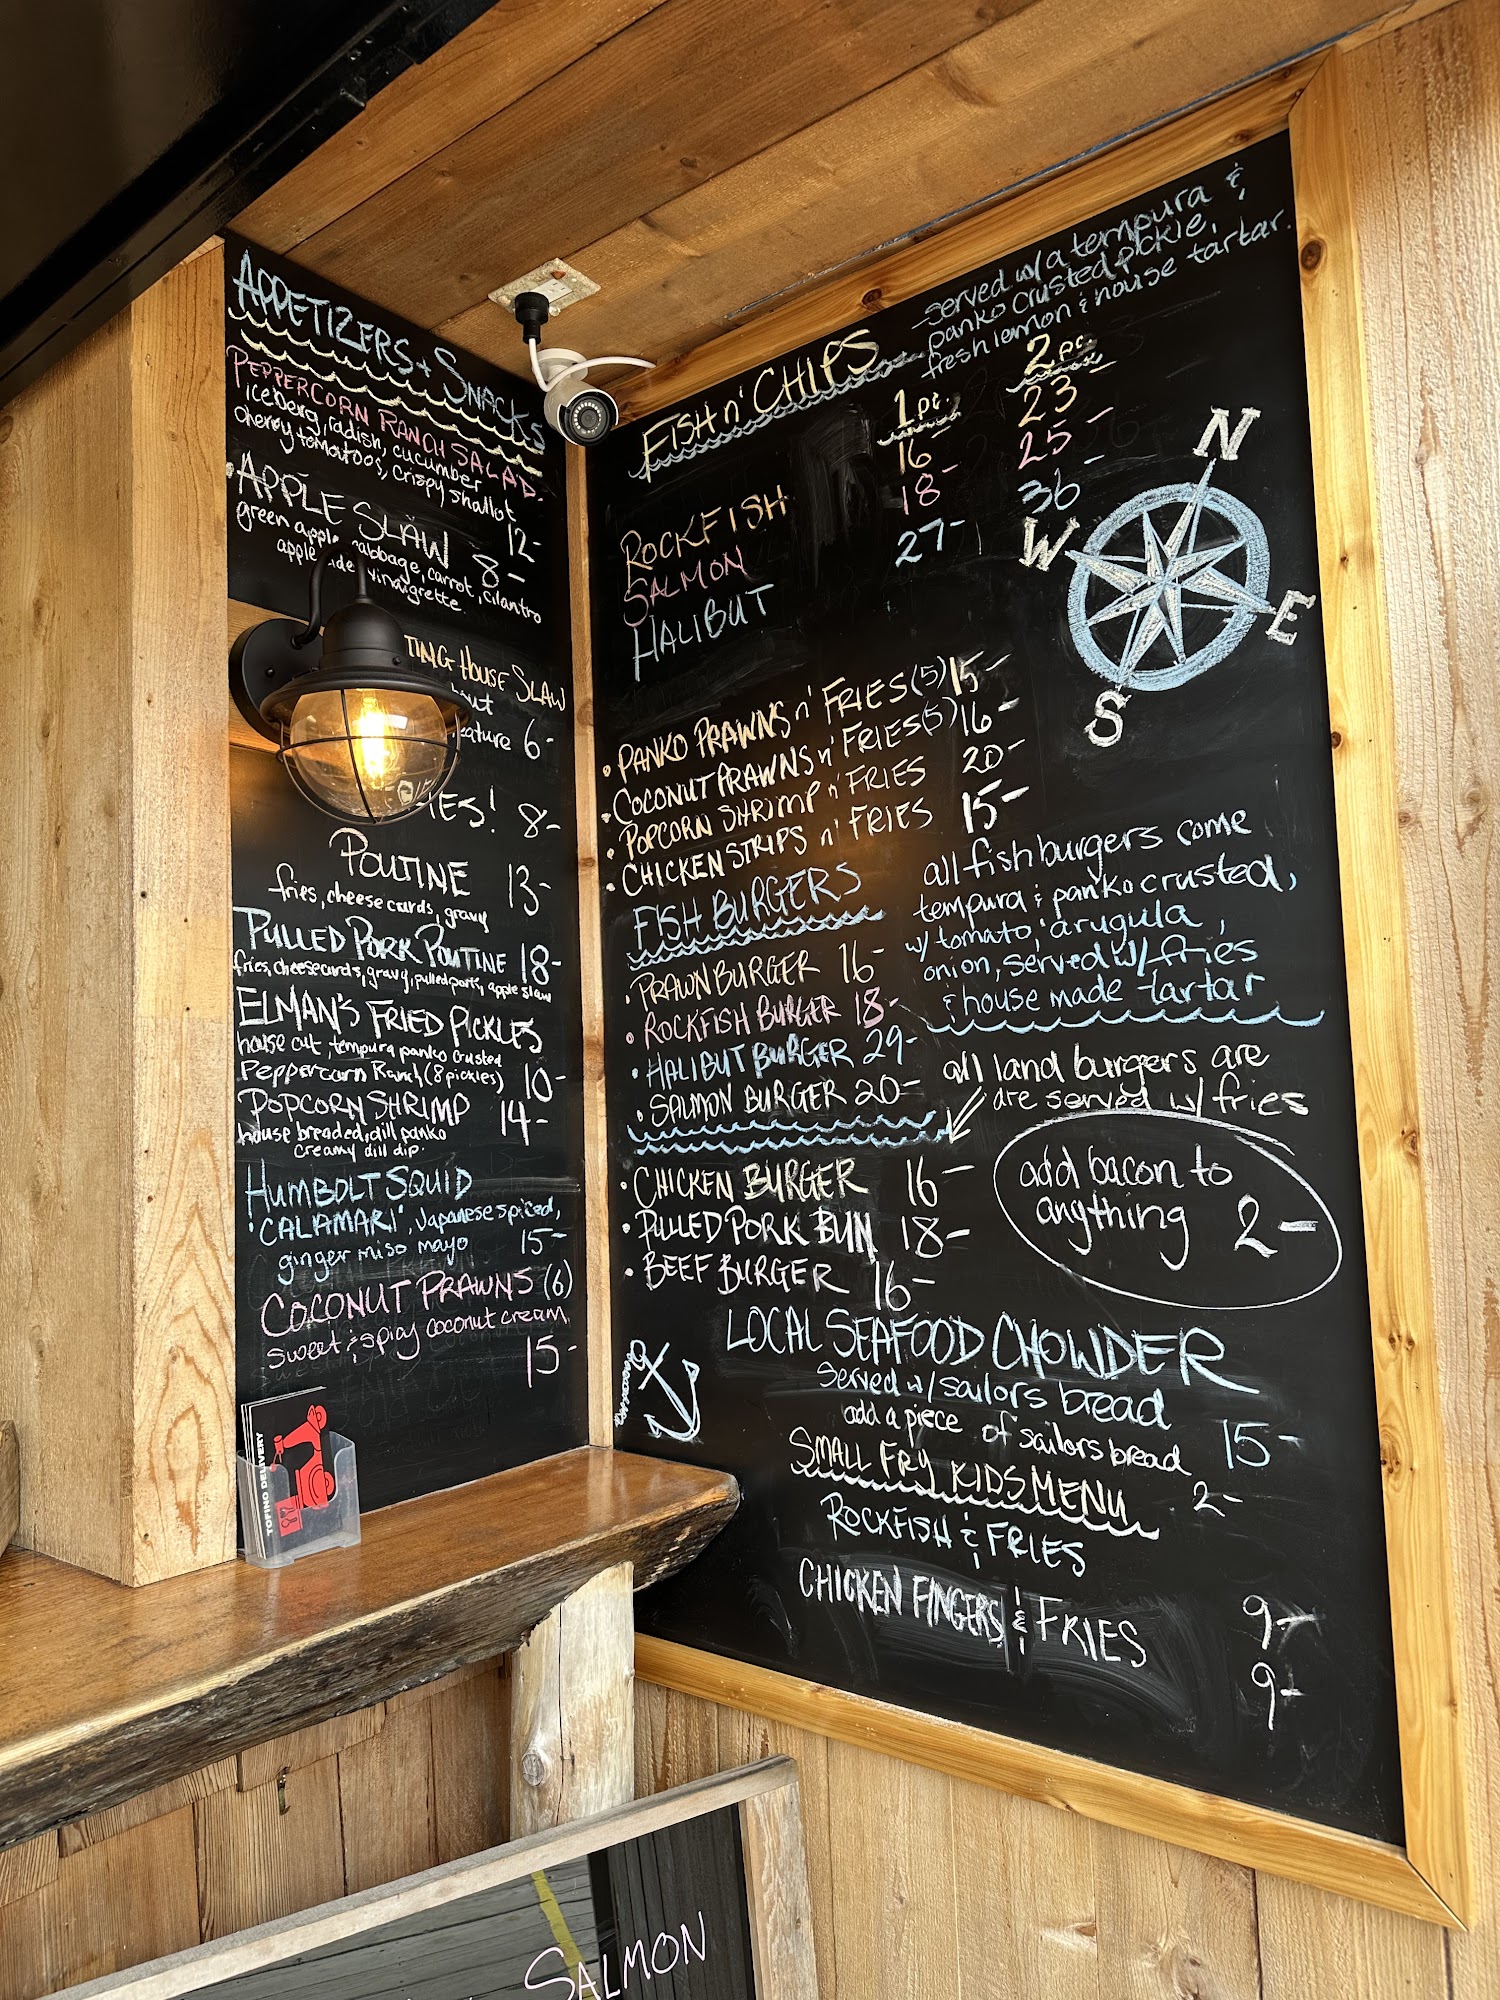 APPETIZERS + SNACKS
PEPPERCORN RANCH SALAD.
iceberg, radish, cucumber
cherry tomatoes, crispy shallot
12-
• APPLE SLAW 8-
green apple, cabbage, carrot, cilantro
apple vinaigrette.
HOUSE SLAW
6-
8-
POUTINE 13-
fries, cheese curds, gravy
PULLED PORK POUTINE 18-
fries, cheesecurds, gravy, pulled pork, apple slaw
ELMAN'S FRIED PICKLES
house cut, tempura panko crusted
Peppercorn Ranch (8 pickles) 10-
POPCORN SHRIMP 14-
house breaded, dill panko
creamy dill dip.
HUMBOLT SQUID
'CALAMARI', Japanese spiced,
ginger miso mayo 15-
COCONUT PRAWNS (6)
sweet & spicy coconut cream
15-
TOFINO DELIVERY
FISH n' CHIPS
-served w/ a tempura &
panko crusted pickle,
fresh lemon & house tartar.
1 pc. 2 pc.
ROCKFISH 16- 23-
SALMON 18- 25-
HALIBUT 27- 36-
N
W
E
S
• PANKO PRAWNS n' FRIES (5) 15-
• COCONUT PRAWNS n' FRIES (5) 16-
• POPCORN SHRIMP n' FRIES 20-
• CHICKEN STRIPS n' FRIES 15-
FISH BURGERS
all fish burgers come
tempura & panko crusted,
w/ tomato, arugula,
onion, served w/ fries
& house made tartar
• PRAWN BURGER 16-
• ROCKFISH BURGER 18-
• HALIBUT BURGER 29-
• SALMON BURGER 20-
all land burgers are
are served w/ fries
• CHICKEN BURGER 16-
• PULLED PORK BUN 18-
• BEEF BURGER 16-
add bacon to
anything 2-
LOCAL SEAFOOD CHOWDER
served w/ sailors bread 15-
add a piece of sailors bread 2-
SMALL FRY KIDS MENU
ROCKFISH & FRIES 9-
CHICKEN FINGERS & FRIES 9-
SALMON